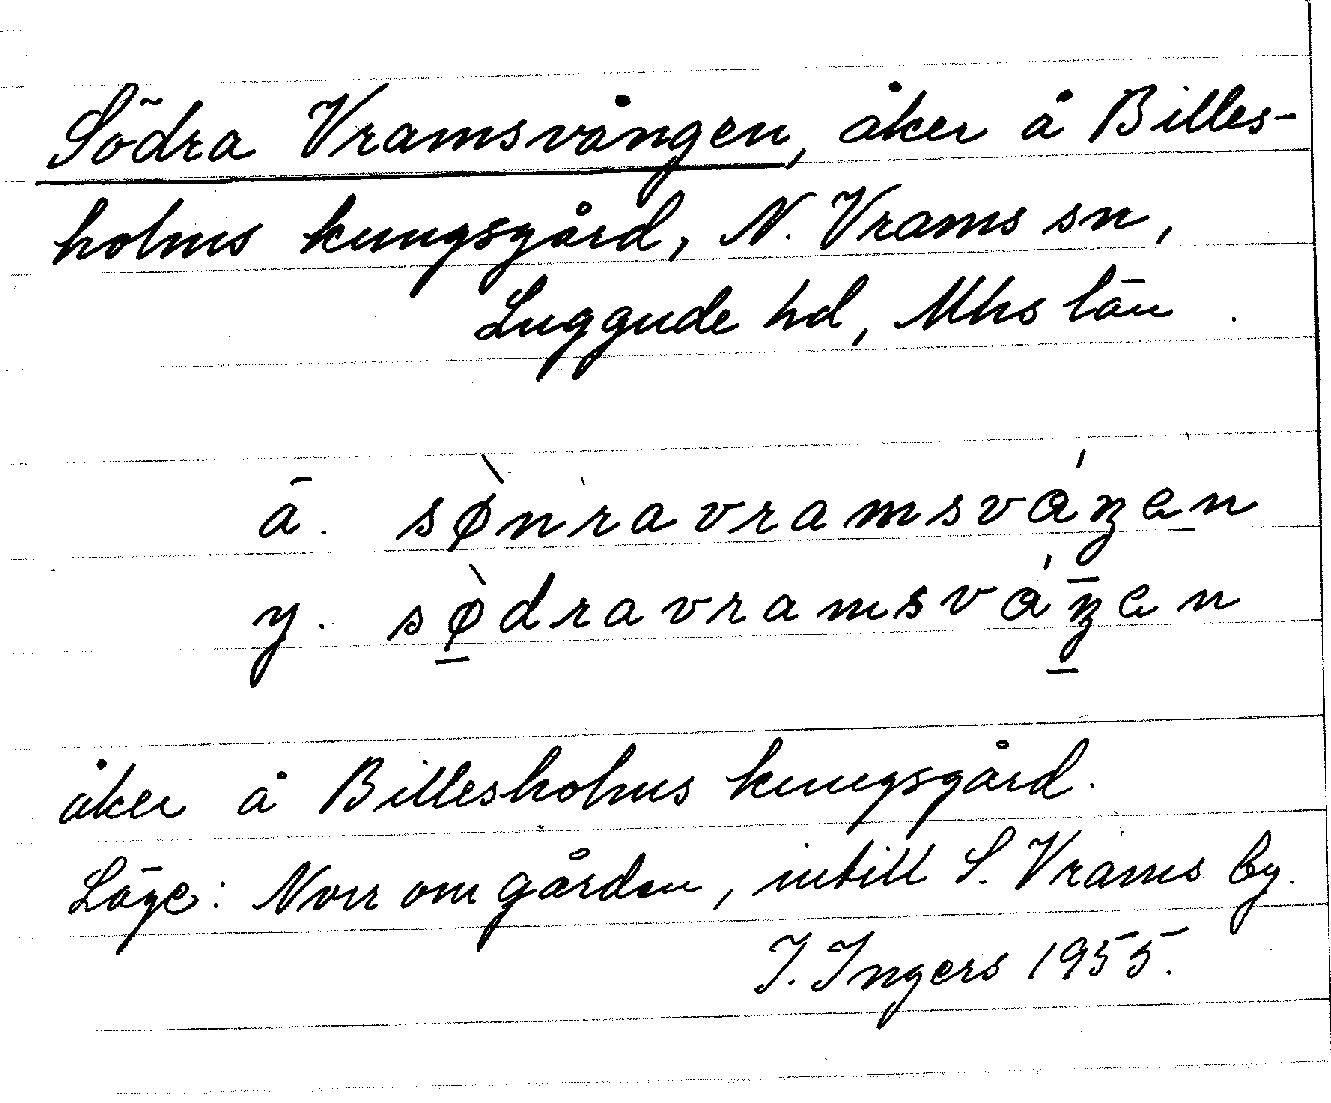 Södra Vramsvången, åker å Billes-
holms kungsgård, N. Vrams sn,
Luggude hd, Mhs län.
ä. sø̀nravramsváŋen
y. sø̀dravramsváŋen
åker å Billesholms kungsgård.
Läge: Norr om gården, intill S. Vrams by.
I. Ingers 1955.